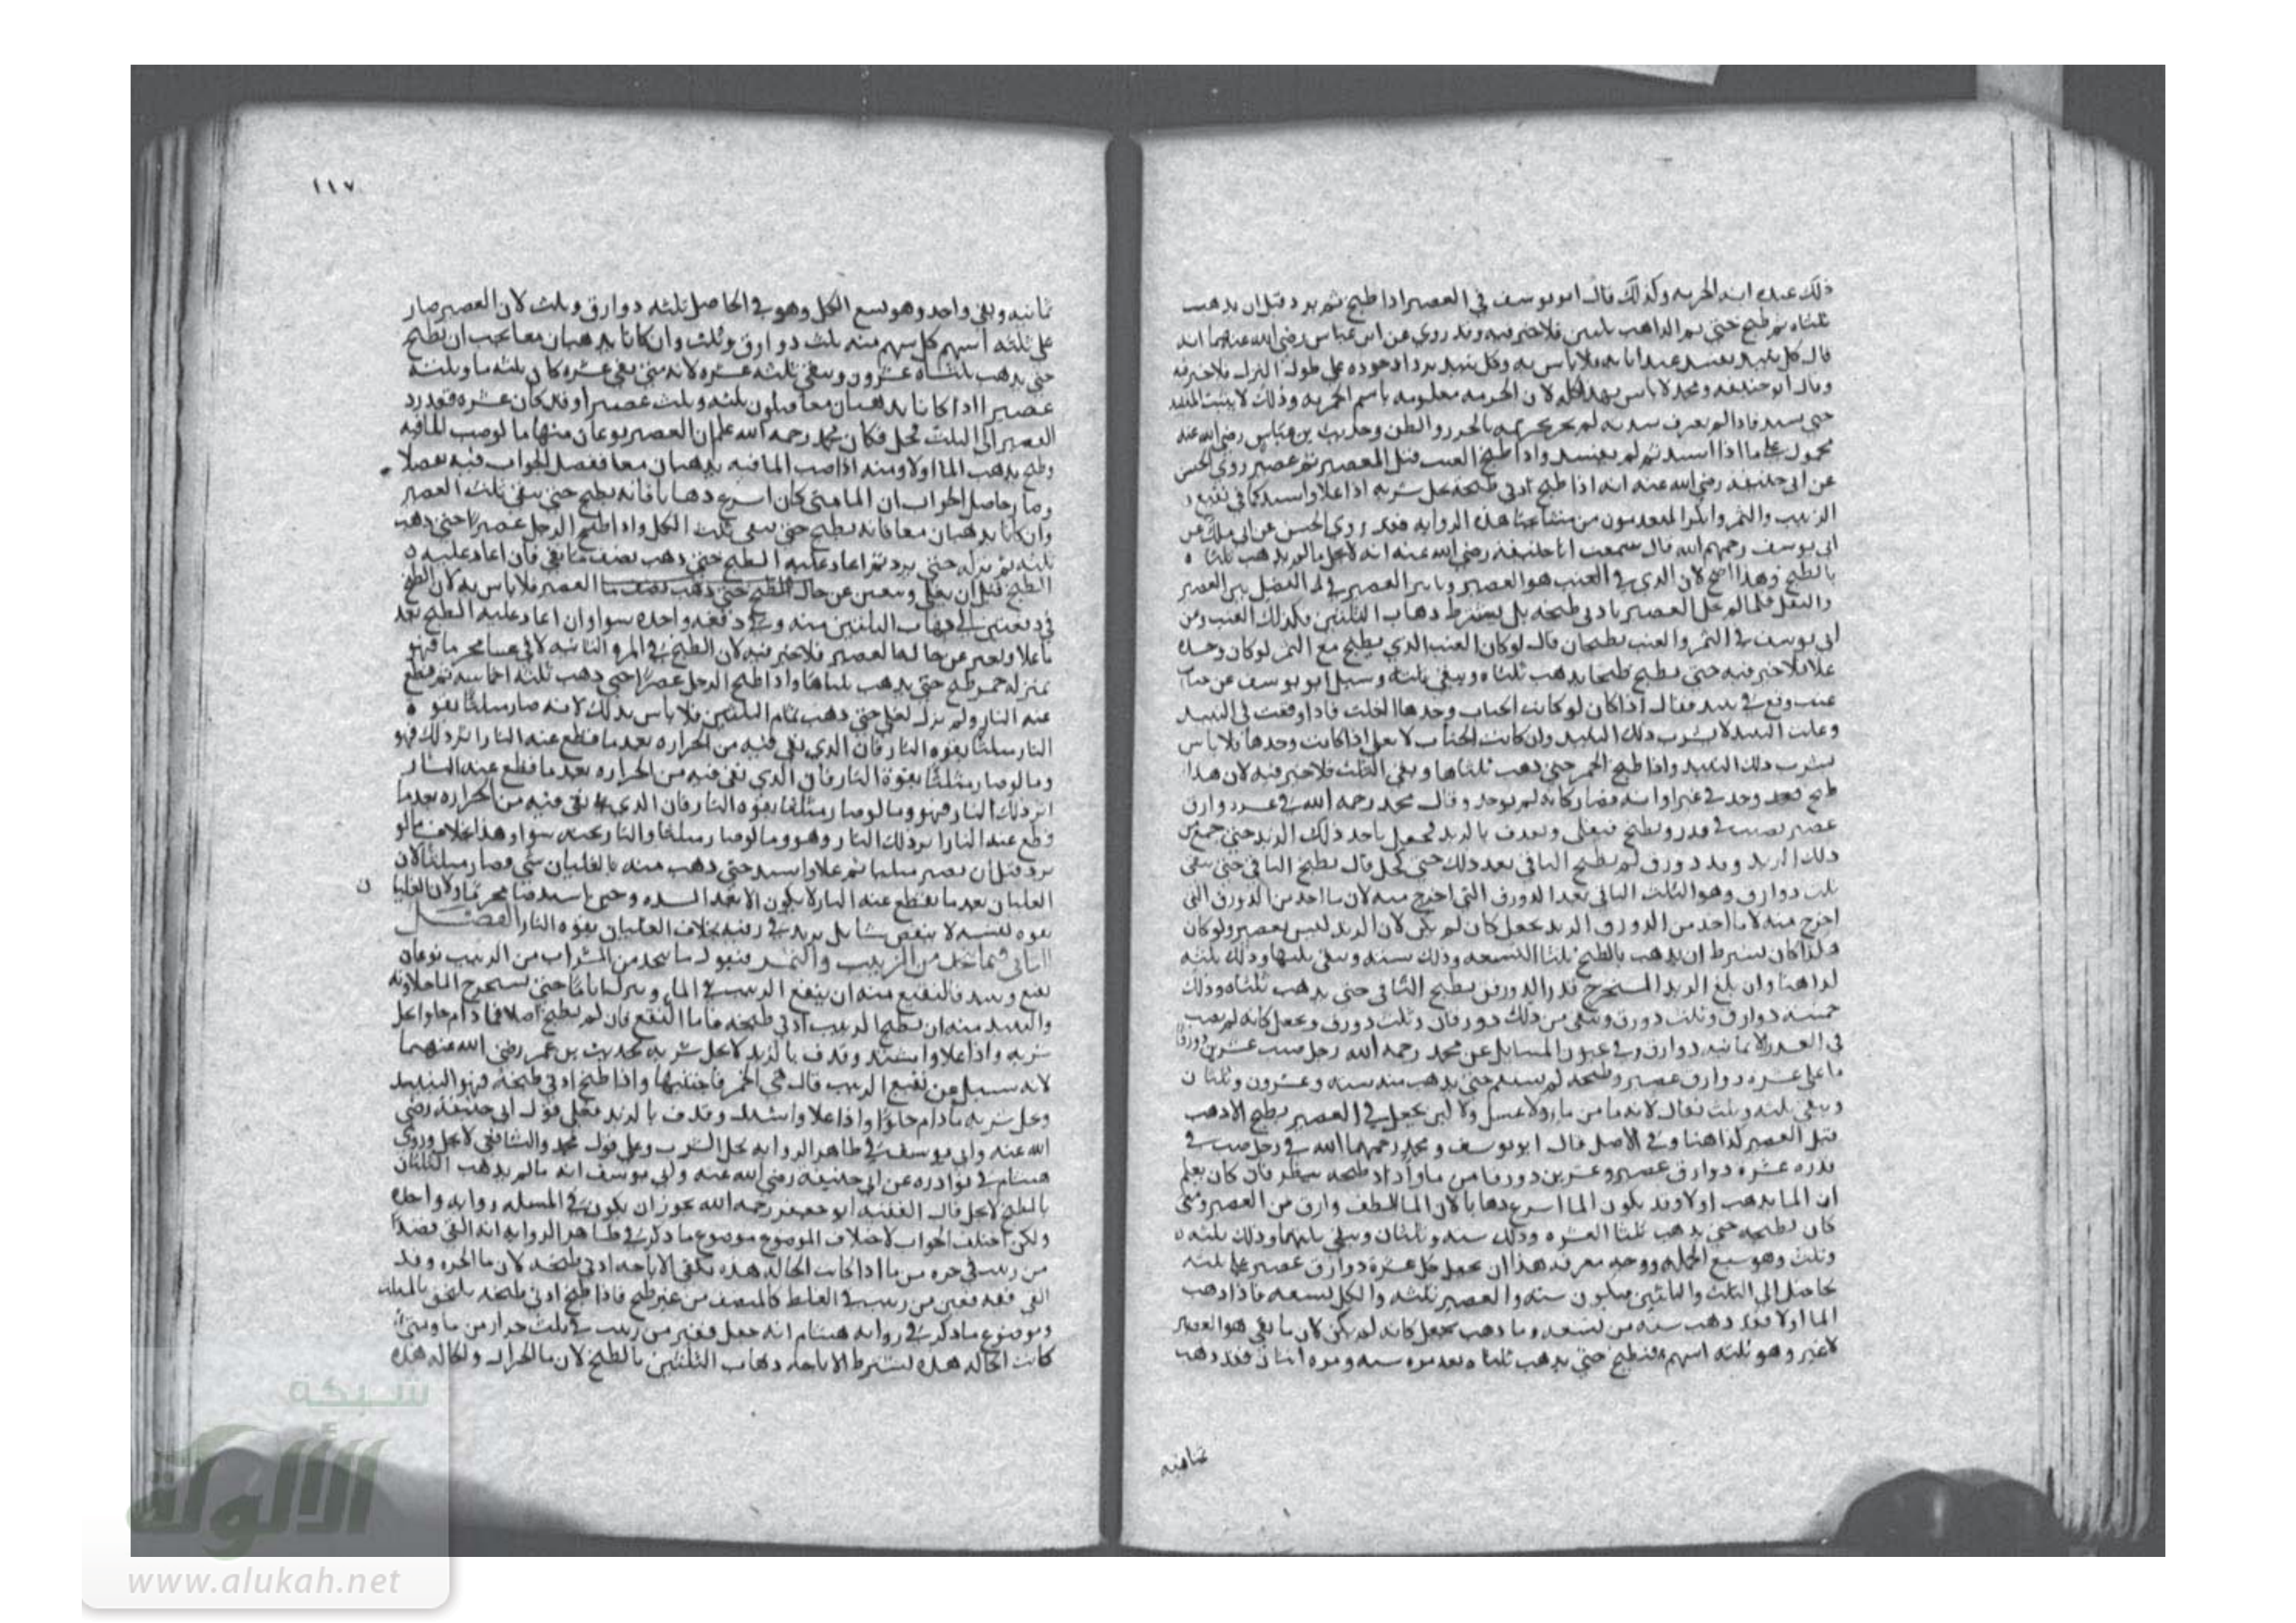 ذلك عنده اسم الخمريه وكذلك قال ابو يوسف في العصير اذا طبخ ثم برد قبل ان يذهب
ثلثاه ثم طبخ حتى تم الذاهب ثلثين فلا خير فيه وقد روي عن ابن عباس رضي الله عنهما انه
قال كل نبيذ يفسد عند ابانه فلا باس به وكل نبيذ يزداد جوده على طول الترك فلا خير فيه
وقال ابو حنيفه ومحمد لا باس بهذا كله لان الحرمه معلومه باسم الخمريه وذلك لا يثبت
حتى يشتد فاذا لم يعرف شدته لم يحز تحريمه بالحزر والظن وحديث بن عباس رضي الله عنه
محمول على ما اذا اشتد ثم لم يفسد واذا طبخ العنب قبل العصير ثم عصر روى الحسن
عن ابي حنيفه رضي الله عنه انه اذا طبخ ادنى طبخه يحل شربه اذا غلا واشتد كما في نقيع
الزبيب والتمر وانكر المتقدمون من مشايخنا هذه الروايه فقد روى الحسن عن ابي ملك عن
ابي يوسف رحمهم الله قال سمعت ابا حنيفه رضي الله عنه انه لا يحل ما لم يذهب ثلثاه
بالطبخ وهذا اصح لان الذي في العنب هو العصير
والثفل فكما لم يحل العصير بادنى طبخه بل يشترط ذهاب الثلثين فكذلك العنب وعن
ابي يوسف في التمر والعنب يطبخان قال لو كان العنب الذي يطبخ مع التمر لو كان وحده
غلا فلا خير فيه حتى يطبخ طبخا يذهب ثلثاه ويبقى ثلثه وسئل ابو يوسف عن حبات
عنب وقع في نبيذ فقال اذا كان لو كانت الحبات وحدها لغلت فاذا وقعت في النبيذ
وغلت النبيذ لا يشرب ذلك النبيذ وان كانت الحبات لا تغلي اذا كانت وحدها فلا باس
بشرب ذلك النبيذ واذا طبخ الخمر حتى ذهب ثلثاها وبقي الثلث فلا خير فيه لان هذا
طبخ وجد في غير اوانه فصار كانه لم يوجد وقال محمد رحمه الله في عشره دوارق
عصير يصب في قدر ويطبخ فيغلي ويقذف بالزبد فجعل ياخذ ذلك الزبد حتى جمع من
ذلك الزبد قدر دورق ثم يطبخ الباقي بعد ذلك حتى يحل قال يطبخ الباقي حتى يبقى
ثلث دوارق وهو الثلث الباقي بعد الدورق التي اخرج منه لان ما اخذ من الدورق التي
اخرج منه لان ما اخذ من الدورق الزبد يجعل كان لم يكن لان الزبد ليس بعصير ولو كان
هكذا كان يشترط ان يذهب بالطبخ ثلثا التسعه وذلك سته ويبقى ثلثها وذلك ثلثه
كذا هنا وان بلغ الزبد المستخرج قدر الدورقين يطبخ الباقي حتى يذهب ثلثاه وذلك
خمسه دوارق وثلث دورق ويبقى من ذلك دورقان وثلث دورق ويجعل كانه لم يصب
في القدر الا ثمانيه دوارق وفي عيون المسايل عن محمد رحمه الله رجل صب عشرين دورقا
ما على عشره دوارق عصير وطبخه لم يستقم حتى يذهب منه سته وعشرون وثلثان
ويبقى ثلثه وثلث فقال لانه ما من ماء ولا عسل ولا لبن يجعل في العصير يطبخ الا ذهب
قبل العصير كذا هنا وفي الاصل قال ابو يوسف ومحمد رحمهما الله في رجل صب في
قدره عشره دوارق عصير وعشرين دورقا من ماء واراد طبخه ينظر فان كان يعلم
ان الما يذهب اولا وقد يكون الما اسرع ذهابا لان الما الطف وارق من العصير ومتى
كان يطبخه حتى يذهب ثلثا العشره وذلك سته وثلثان ويبقى ثلثها وذلك ثلثه
وثلث وهو تسع الجمله ووجه معرفه هذا ان يجعل كل عشره دوارق عصير على ثلثه
لحاجتك الى الثلث والثلثين فيكون سته والعصير ثلثه والكل تسعه فاذا ذهب
الما اولا فقد ذهب سته من تسعه وما ذهب يجعل كانه لم يكن لان ما بقي هو العصير
لا غير وهو ثلثه اسهم فيطبخ حتى يذهب ثلثاه بعد مره سته ومره اثنان فقد ذهب
ثمانيه
١١٧
ثمانيه وبقي واحد وهو تسع الكل وهو في الحاصل ثلثه دوارق وثلث لان العصير صار
على ثلثه اسهم كل سهم منه ثلث دوارق وثلث وان كانا يذهبان معا يجب ان يطبخ
حتى يذهب ثلثاه عشرون ويبقى ثلثه عشره لانه متى بقي عشره كان ثلثه ما وثلثه
عصيرا اذا كانا يذهبان معا فيكون ثلثه وثلث عصيرا وقد كان عشره فقد رد
العصير الى الثلث فحل فكان محمد رحمه الله علم ان العصير نوعان منها ما لو صب الما فيه
وطبخ يذهب الما اولا ومنه اذا صب الما فيه يذهبان معا ففصل الجواب فيه تفصيلا
وصار حاصل الجواب ان الما متى كان اسرع ذهابا فانه يطبخ حتى يبقى ثلث العصير
وان كانا يذهبان معا فانه يطبخ حتى يبقى ثلث الكل واذا طبخ الرجل عصيرا حتى ذهب
ثلثه ثم تركه حتى برد ثم اعاد عليه الطبخ حتى ذهب نصف ما بقي فان اعاد عليه
الطبخ قبل ان يغلي ويتغير عن حال العصير فلا باس به لان الطبخ
في دفعتين الى ذهاب الثلثين منه وفي دفعه واحده سوا وان اعاد عليه الطبخ بعد
ما غلا وتغير عن حاله العصير فلا خير فيه لان الطبخ في المره الثانيه لاقى عينا محرما فهو
بمنزله خمر طبخ حتى يذهب ثلثاها واذا طبخ الرجل عصيرا حتى ذهب ثلثه اخماسه ثم قطع
عنه النار ولم يزل يغلي حتى ذهب تمام الثلثين فلا باس بذلك لانه صار مثلثا بقوه
النار مثلثا بقوه النار فان الذي بقي فيه من الحراره بعد ما قطع عنه النار اثر ذلك فهو
وما لو صار مثلثا بقوه النار فان الذي بقي فيه من الحراره بعد ما قطع عنه النار
اثر ذلك النار فهو وما لو صار مثلثا بقوه النار فان الذي بقي فيه من الحراره بعد ما
قطع عنه النار اثر ذلك النار وهو وما لو صار مثلثا والنار تحته سوا وهذا بخلاف ما لو
برد قبل ان يصير مثلثا ثم غلا واشتد حتى ذهب منه بالغليان شي وصار مثلثا لان
الغليان بعد ما ينقطع عنه النار لا يكون الا بعد الشده وحين اشتد صار محرما ولان الغليان
بقوه نفسه لا ينقص شيا بل يزيد في رقته بخلاف الغليان بقوه النار الفصل
الثاني فيما يتخذ من الزبيب والتمر فنقول ما يتخذ من الشراب من الزبيب نوعان
نقيع ونبيذ فالنقيع منه ان ينقع الزبيب في الما ويترك اياما حتى يستخرج الما حلاوته
والنبيذ منه ان يطبخ الزبيب ادنى طبخه فاما النقيع فان لم يطبخ اصلا فما دام حلوا يحل
شربه واذا غلا واشتد وقذف بالزبد لا يحل شربه لحديث بن عمر رضي الله عنهما
لانه سئل عن نقيع الزبيب قال هي الخمر فاجتنبها واذا طبخ ادنى طبخه فهو النبيذ
وحل شربه ما دام حلوا واذا غلا واشتد وقذف بالزبد فعلى قول ابي حنيفه رضي
الله عنه وابي يوسف في ظاهر الروايه يحل الشرب وعلى قول محمد والشافعي لا يحل وروى
هشام في نوادره عن ابي حنيفه رضي الله عنه وابي يوسف انه ما لم يذهب الثلثان
بالطبخ لا يحل قال الفقيه ابو جعفر رحمه الله يجوز ان يكون في المسله روايه واحده
ولكن اختلف الجواب لاختلاف الموضوع موضوع ما ذكر في ظاهر الروايه انه القى
من زبيب في جره من ما اذا كانت الحاله هذه تكفي الاباحه ادنى طبخه لان ما الجره وقد
القى فيه قفيز من زبيب في الغلظ كالمنصف من غير طبخ فاذا طبخ ادنى طبخه يلتحق بالمثلث
وموضوع ما ذكر في روايه هشام انه جعل قفيز من زبيب في ثلث جرار من ما ومتى
كانت الحاله هذه يشترط الاباحه ذهاب الثلثين بالطبخ لان ما الجرار والحاله هذه
شبكة
الألوكة
www.alukah.net